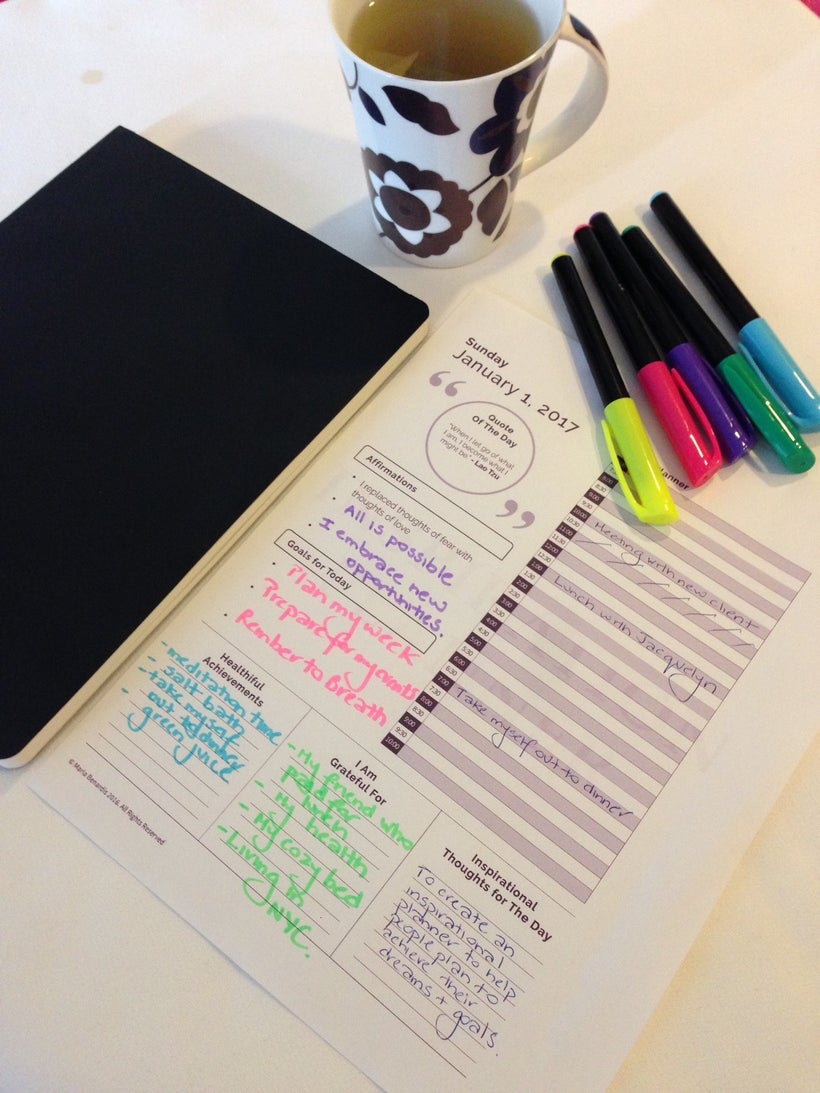 Sunday
January 1, 2017
“
Quote
Of The Day
"When I let go of what
I am, I become what I
might be." - Lao Tzu
”
Affirmations
• I replaced thoughts of fear with
thoughts of love
• All is possible
• I embrace new
opportunities.
Goals for Today
• Plan my week
• Prepare for my events
• Rember to Breath
Healthful
Achievements
- meditation time
- salt bath
- take myself
out to dinner
- green juice
I Am
Grateful For
- My friend who
paid for
lunch
- My health
- My cozy bed
- Living in
NYC.
Inspirational
Thoughts for The Day
To create an
inspirational
planner to help
people plan to
achieve their
dreams + goals.
8:00
8:30
9:00
9:30
10:00
10:30
11:00 Meeting with new client
11:30
12:00
12:30
1:00 Lunch with Jacquelyn
1:30
2:00
2:30
3:00
3:30
4:00
4:30
5:00
5:30
6:00
6:30
7:00 Take myself out to dinner
7:30
8:00
8:30
9:00
9:30
10:00
© Maria Benardis 2016. All Rights Reserved